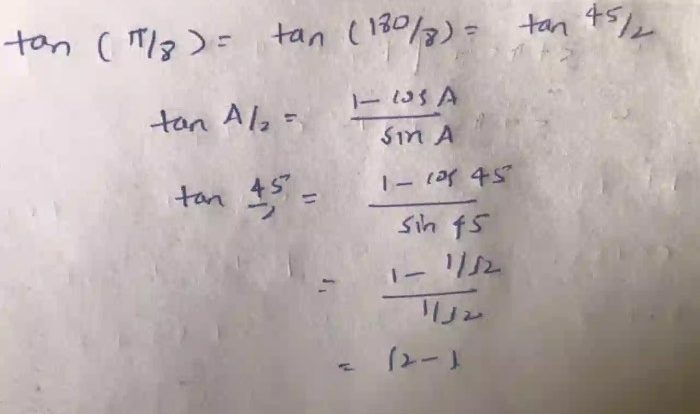 tan (π/8) = tan (180/8) = tan 45/2
tan A/2 = (1 - cos A)/(sin A)
tan 45/2 = (1 - cos 45)/(sin 45)
= (1 - 1/√2)/(1/√2)
= √2 - 1